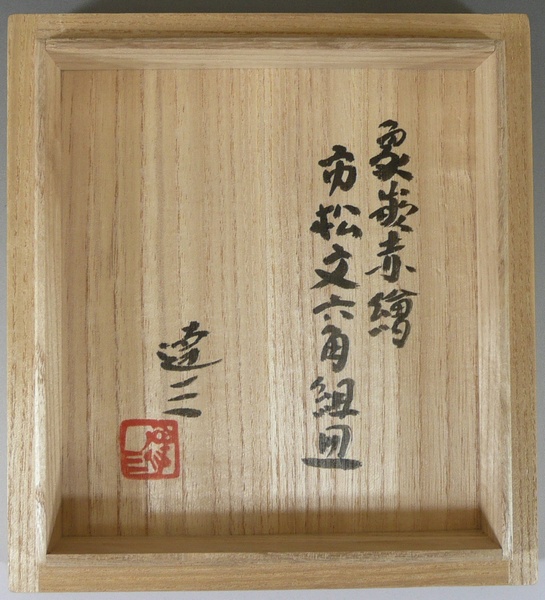 象嵌赤繪
市松文六角組皿
達三